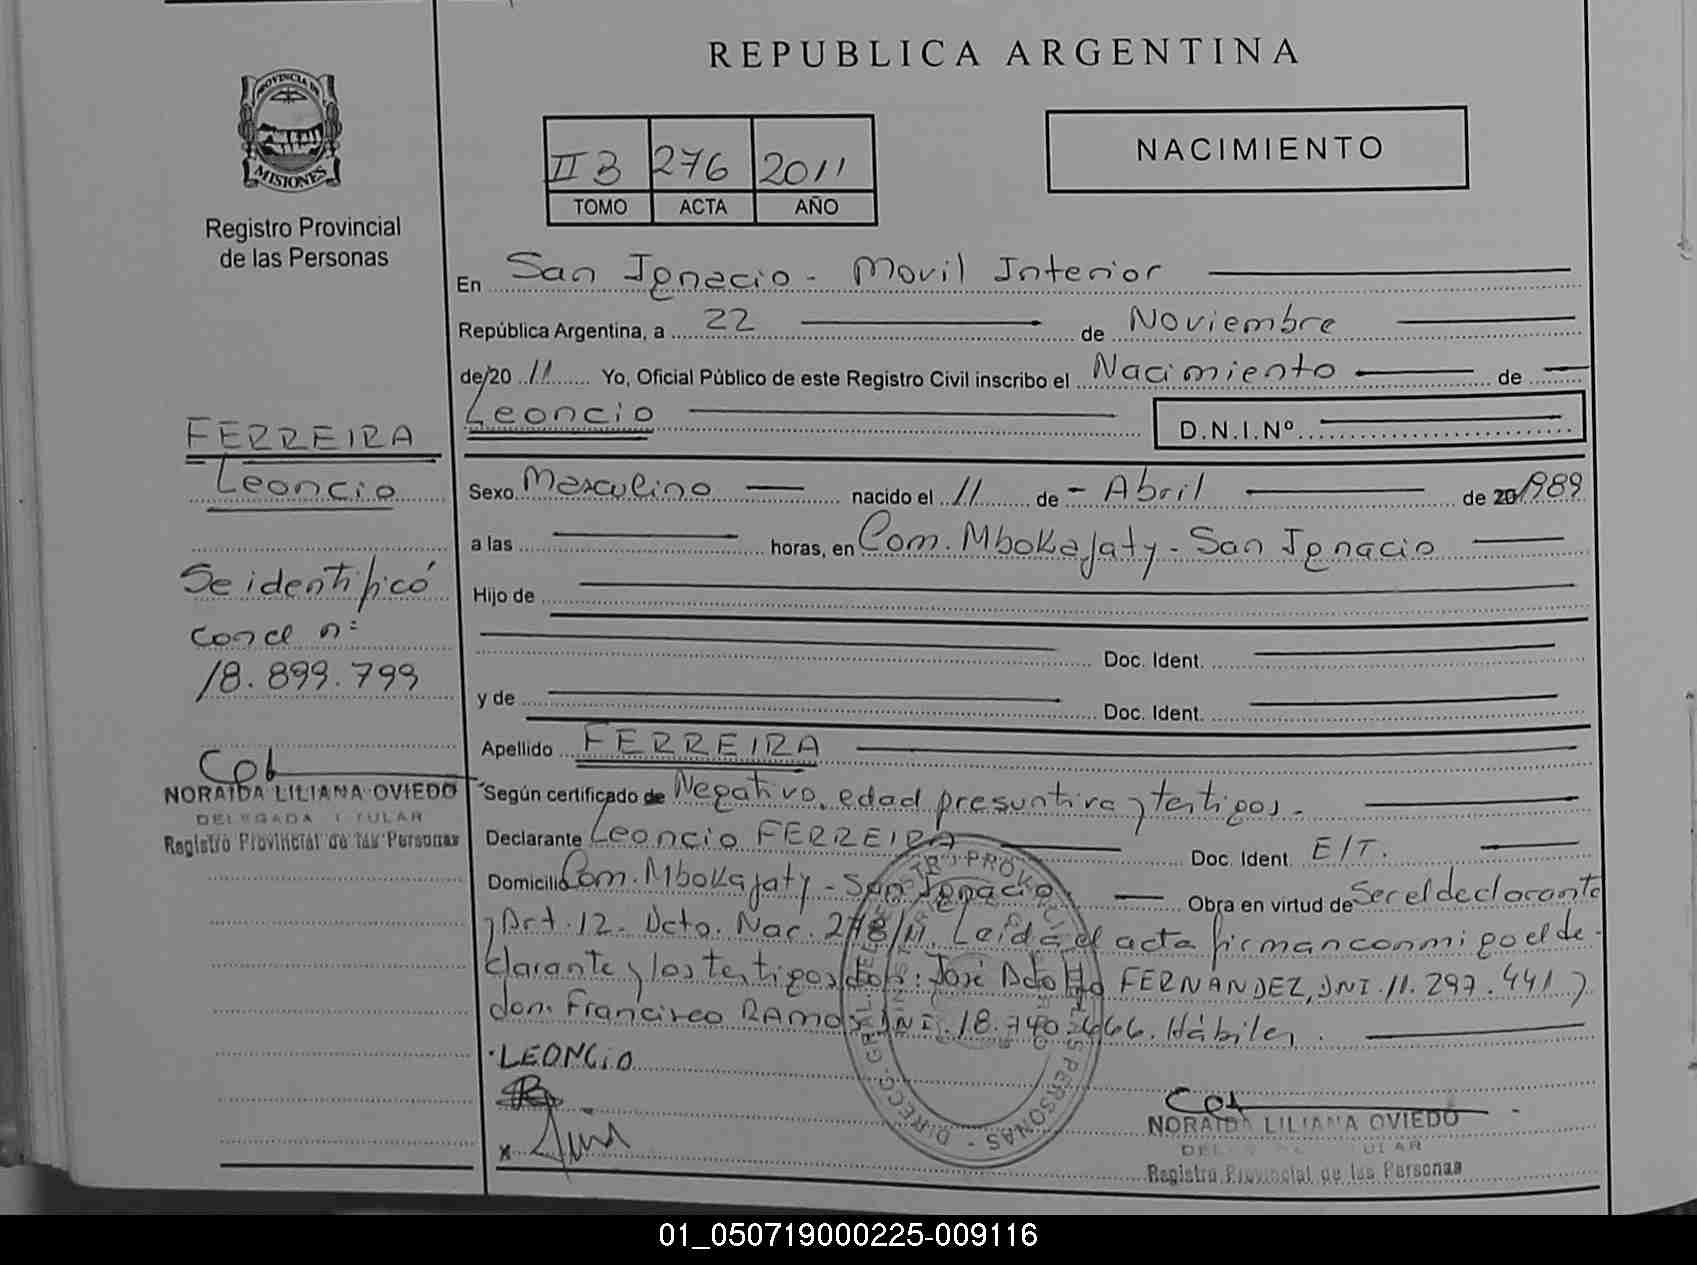 REPUBLICA ARGENTINA
PROVINCIA DE
MISIONES
Registro Provincial
de las Personas
II B 276 2011
TOMO ACTA AÑO
NACIMIENTO
En San Ignacio - Movil Interior
República Argentina, a 22 de Noviembre
de 20 11 Yo, Oficial Público de este Registro Civil inscribo el Nacimiento de
Leoncio
D.N.I.Nº
FERREIRA
Leoncio
Se identificó
con el nº
18.899.799
NORAIDA LILIANA OVIEDO
DELEGADA TITULAR
Registro Provincial de las Personas
Sexo Masculino nacido el 11 de - Abril de 20 1989
a las horas, en Com. Mbokajaty - San Ignacio
Hijo de
Doc. Ident.
y de Doc. Ident.
Apellido FERREIRA
Según certificado de Negativo, edad presuntiva y testigos.
Declarante Leoncio FERREIRA Doc. Ident. E/T.
Domicilio Com. Mbokajaty - San Ignacio Obra en virtud de Ser el declarante
y Art. 12 - Dcto. Nac. 278/11. Leída el acta firman conmigo el de-
clarante y los testigos don: José Adolfo FERNANDEZ, DNI. 11.297.441 y
don. Francisco RAMOS DNI. 18.740.466. Hábiles.
LEONCIO
NORAIDA LILIANA OVIEDO
Registro Provincial de las Personas
01_050719000225-009116